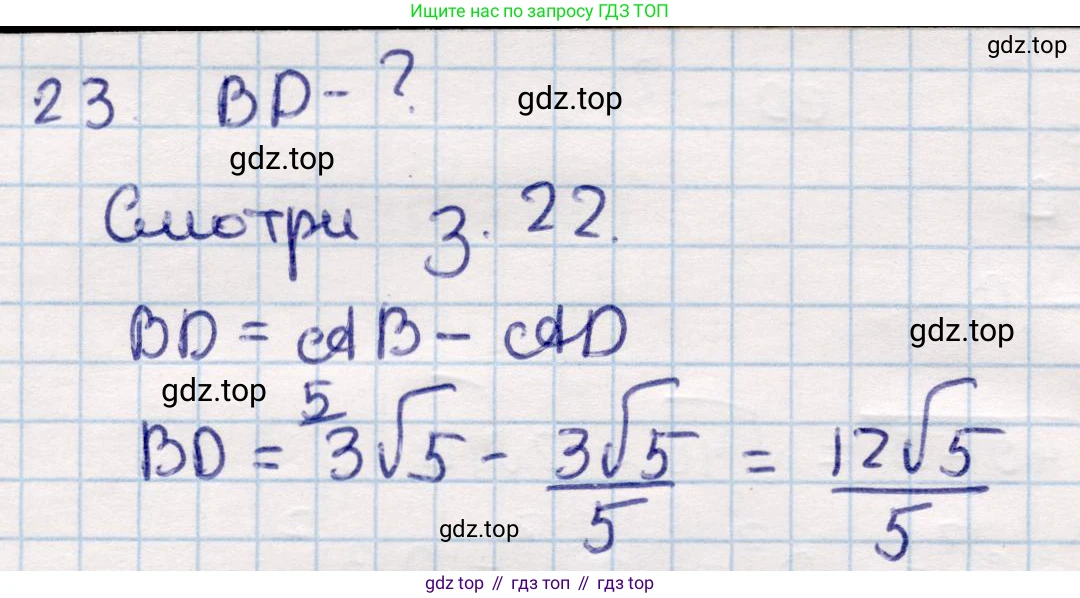 Ищите нас по запросу ГДЗ ТОП
gdz.top
23. BD - ?
gdz.top
gdz.top
Смотри 3. 22.
BD = AB - AD
gdz.top
gdz.top
BD = ⁵⁄3√5 - 3√5/5 = 12√5/5
gdz.top
gdz top // гдз топ // гдз top